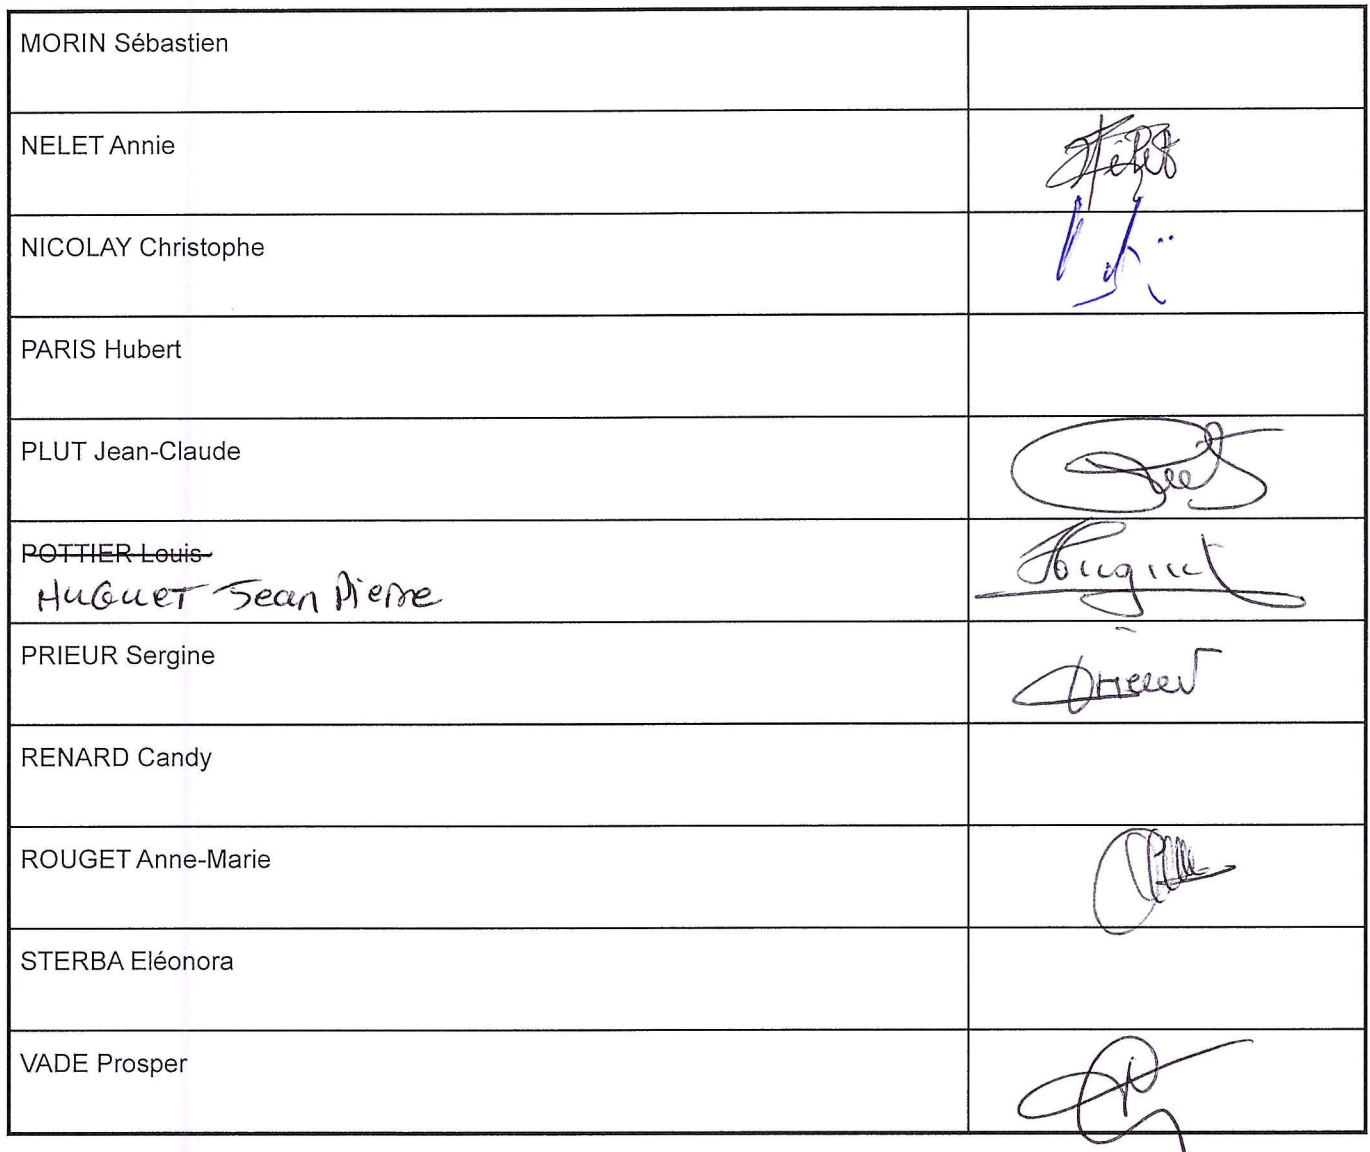 MORIN Sébastien
NELET Annie
NICOLAY Christophe
PARIS Hubert
PLUT Jean-Claude
POTTIER Louis
HUGUET Jean Pierre
PRIEUR Sergine
RENARD Candy
ROUGET Anne-Marie
STERBA Eléonora
VADE Prosper